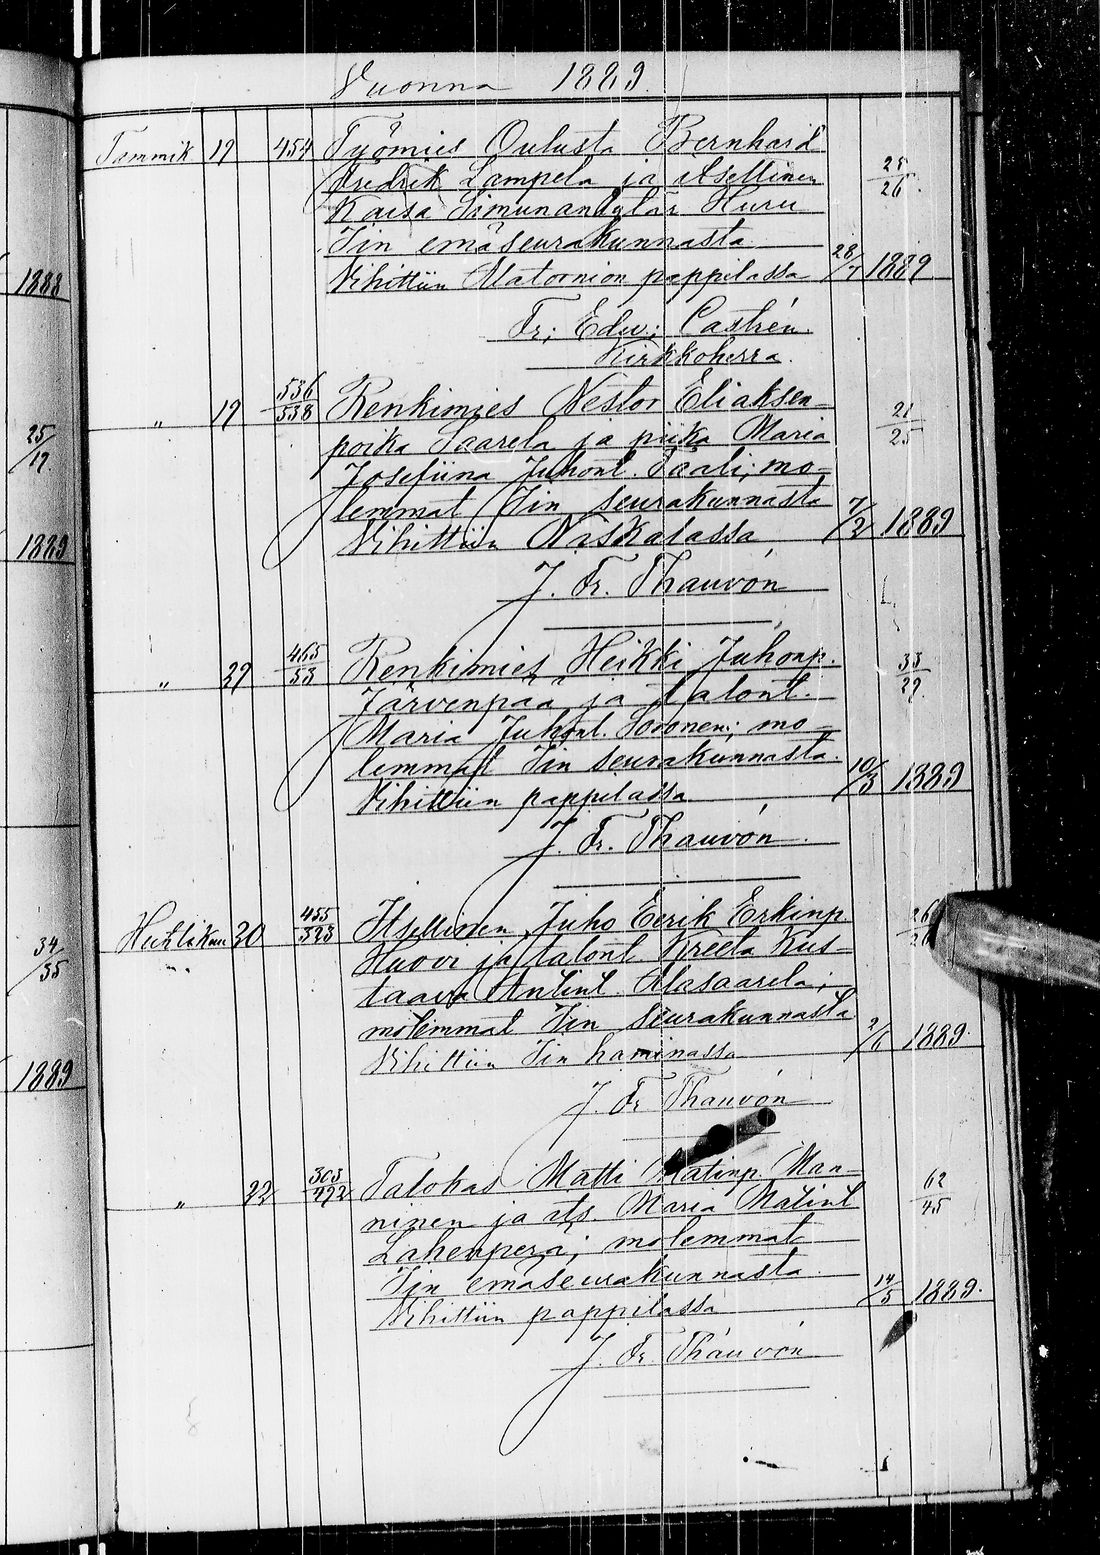 Vuonna 1889.
Tammik 19 454 Työmies Oulusta Bernhard
Fredrik Lampela ja itsellinen 25/26.
Kaisa Simunantytär Huru
Iin emäseurakunnasta
Vihittiin Alatornion pappilassa 28/7 1889
Fr; Edw; Castrén.
Kirkkoherra.
" 19 536/538 Renkimies Nestor Eliaksen-
poika Saarela ja piika Maria 21/25
Josefiina Juhont. Paali; mo-
lemmat Iin seurakunnasta
Vihittiin Naskalassa 7/2 1889
J. Fr. Thauvón
" 29 465/53 Renkimies Heikki Juhonp. 33/29
Järvenpää ja talont.
Maria Juhont. Soronen; mo-
lemmat Iin seurakunnasta.
Vihittiin pappilassa 10/3 1889
J. Fr. Thauvón.
Huhtikuu 20 455/323 Itsellinen Juho Eerik Erkinp 26/26
Huovi ja talont Kreeta Kus-
taava Antint. Alasaarela;
molemmat Iin seurakunnasta
Vihittiin Iin haminassa 2/6 1889.
J. Fr Thauvón
" 22 303/492 Talokas Matti Matinp. Man-
ninen ja its. Maria Matint 62/45
Lahenperä; molemmat
Iin emäseurakunnasta.
Vihittiin pappilassa 14/5 1889.
J. Fr Thauvón
1888
25/19
1889
34/35
1889